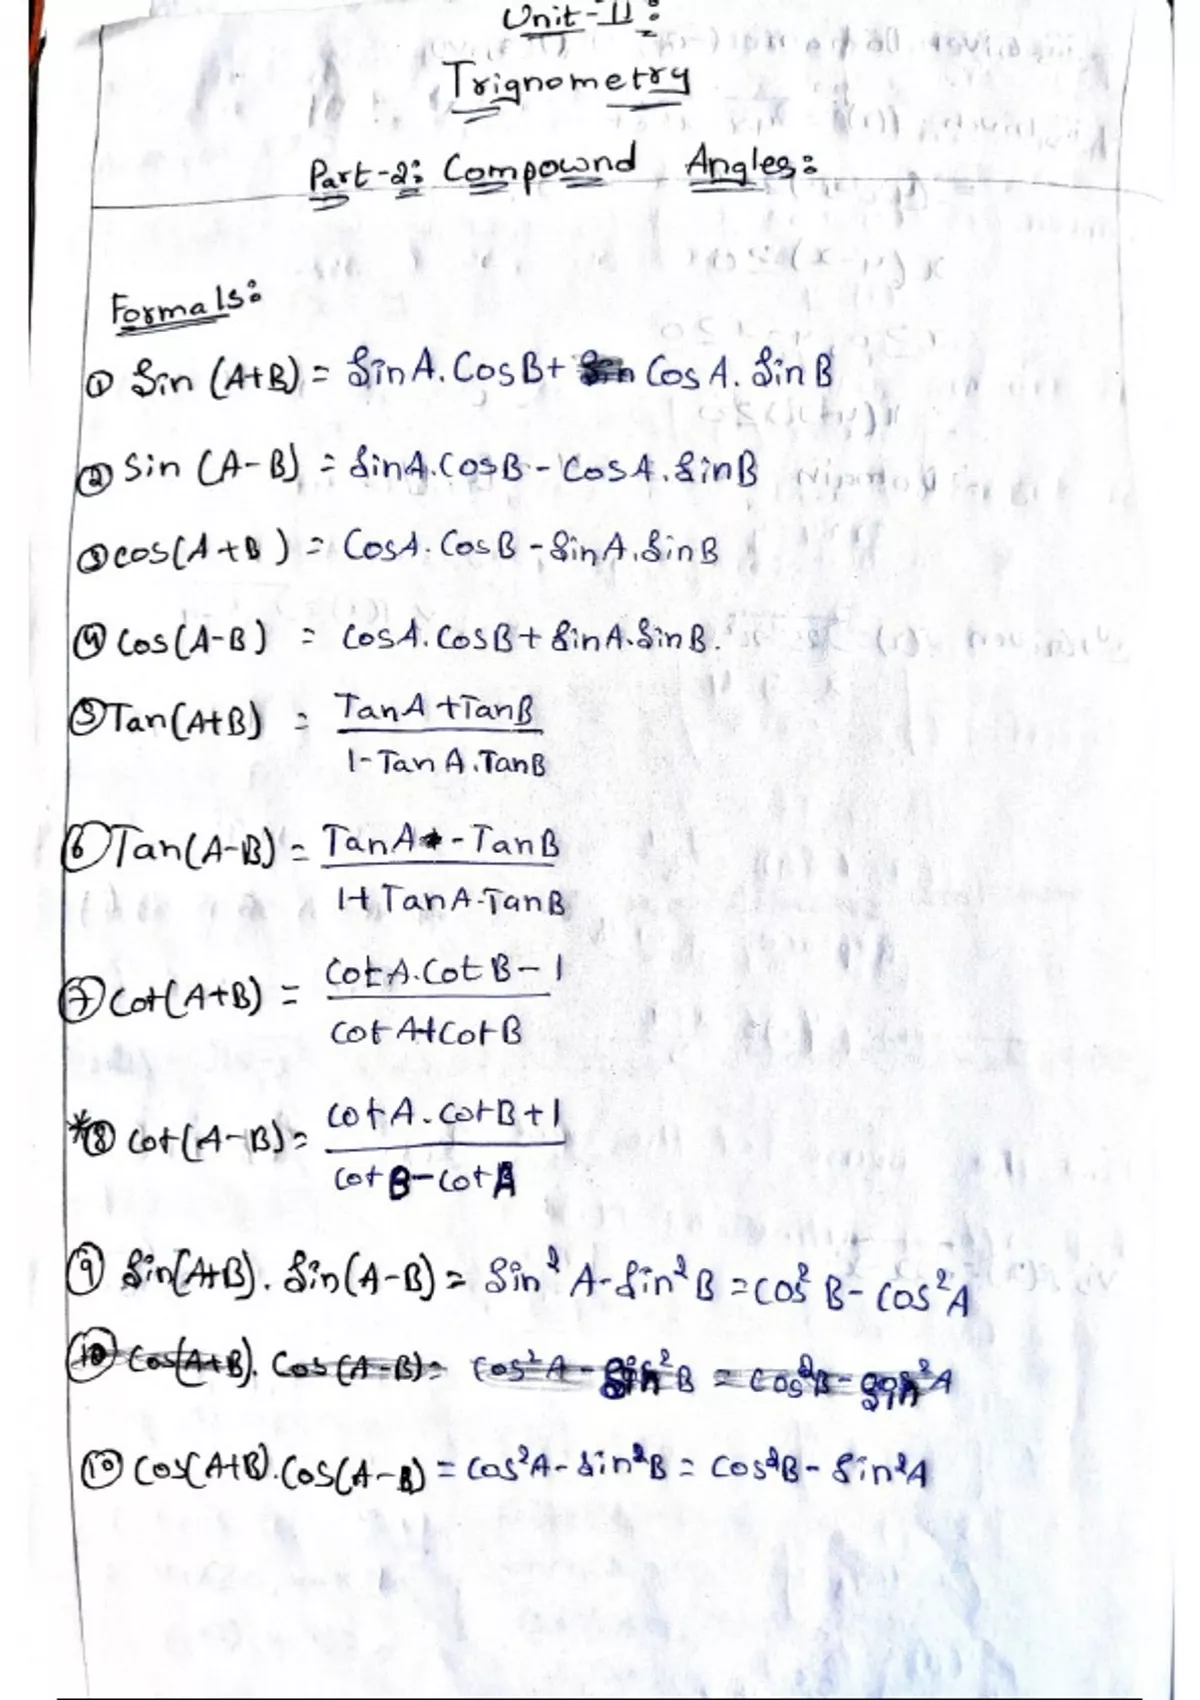 Unit-II:
Trignometry
Part-2: Compound Angles:
Formals:
① Sin (A+B) = SinA. CosB + Cos A. Sin B
② Sin (A-B) = SinA.CosB - CosA.SinB
③ cos(A+B) = CosA. CosB - SinA.SinB
④ Cos(A-B) = CosA.CosB + SinA.SinB.
⑤ Tan(A+B) = TanA +TanB
1-Tan A.TanB
⑥ Tan(A-B) = TanA - TanB
1+ TanA.TanB
⑦ Cot(A+B) = CotA.CotB-1
Cot A+CotB
*⑧ Cot(A-B) = Cot A. CotB+1
Cot B-Cot A
⑨ Sin(A+B). Sin(A-B) = Sin² A-Sin² B = Cos² B- Cos² A
⑩ Cos(A+B). Cos(A-B) = Cos² A - Sin² B = Cos² B - Sin² A
⑩ Cos(A+B).Cos(A-B) = Cos²A- Sin²B = Cos²B- Sin²A